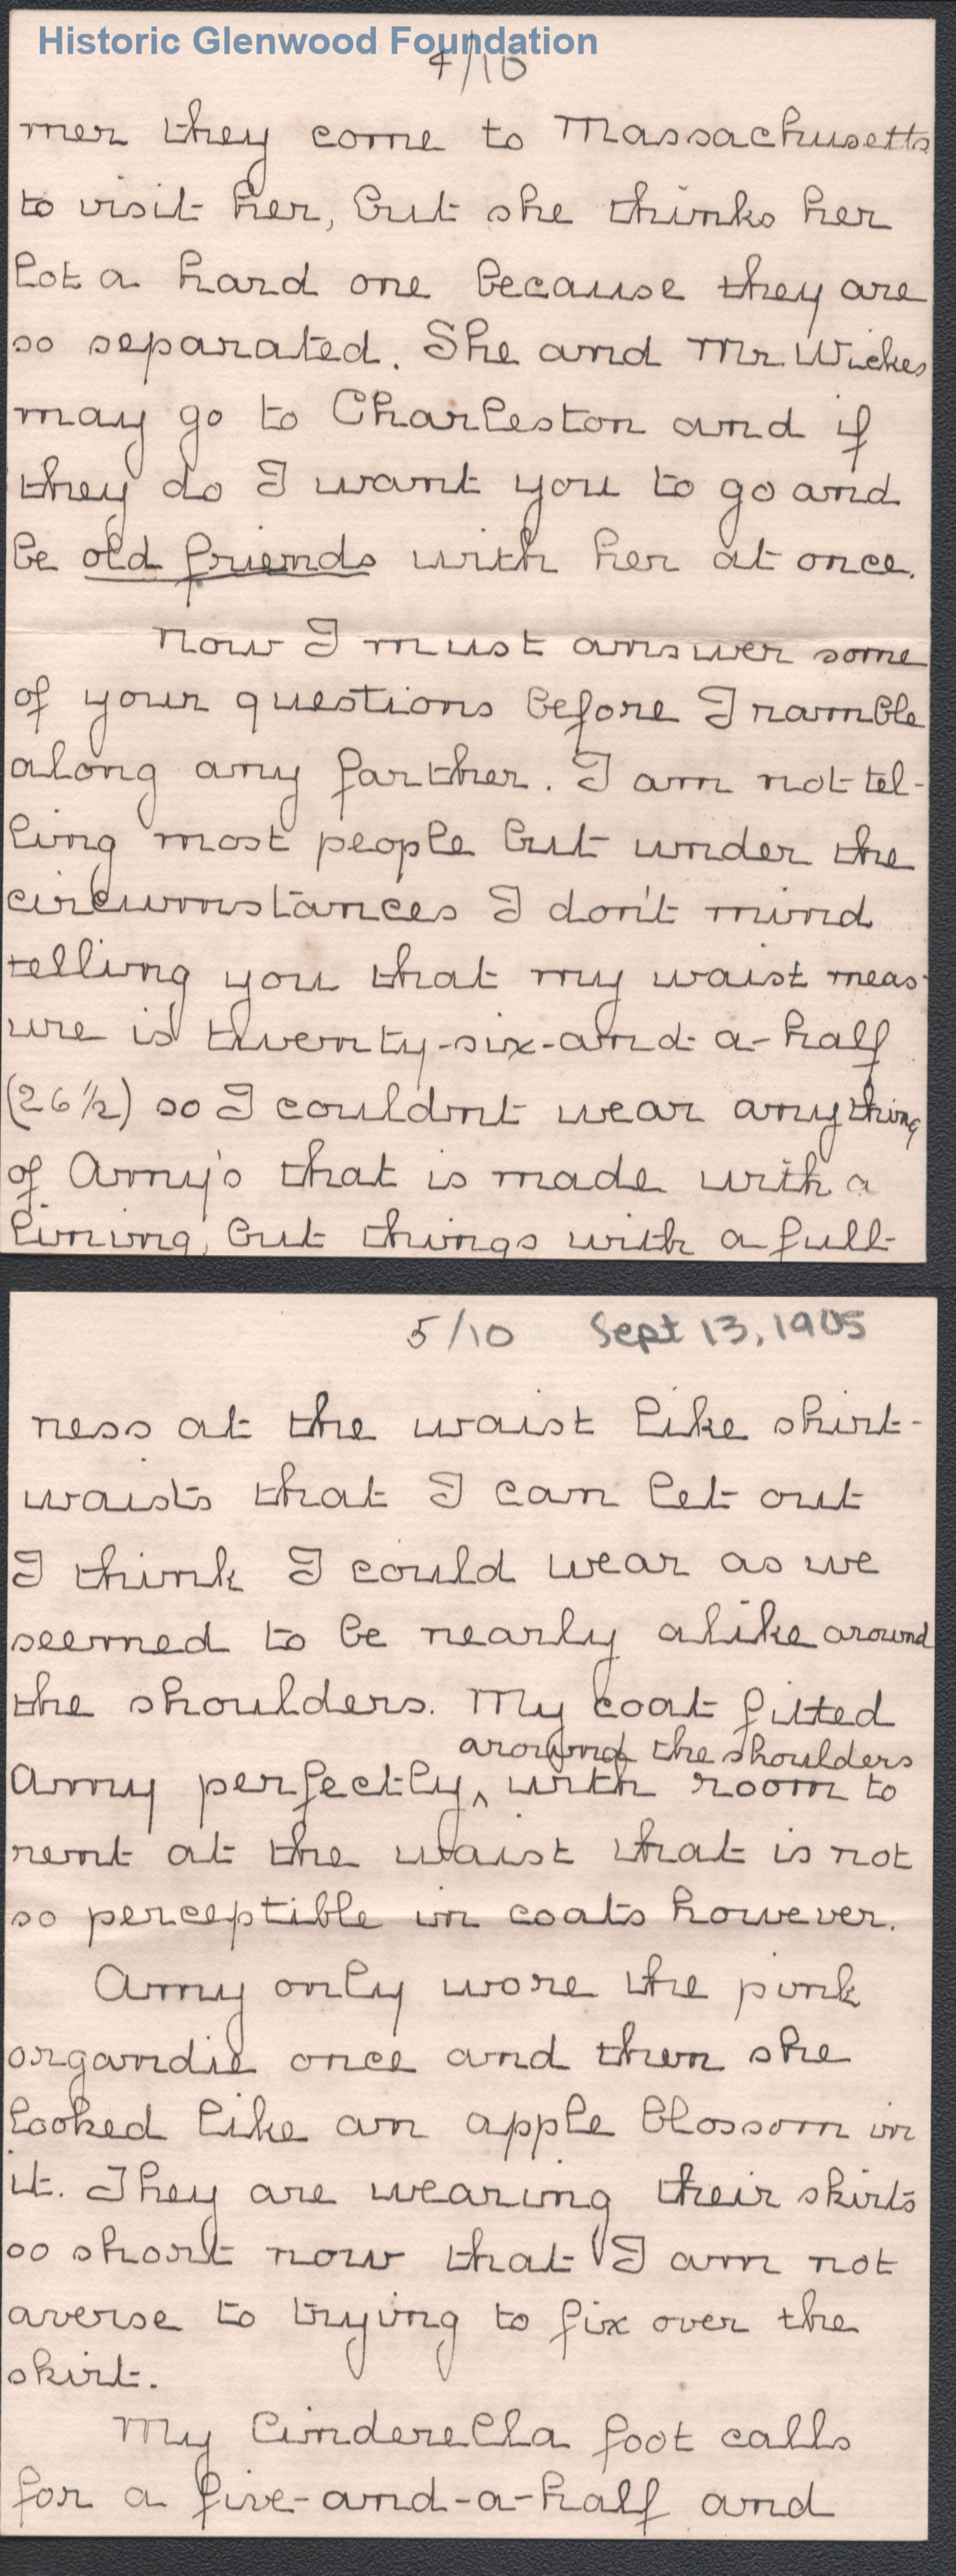 Historic Glenwood Foundation
4/10
mer they come to Massachusetts
to visit her, but she thinks her
lot a hard one because they are
so separated. She and Mr. Wickes
may go to Charleston and if
they do I want you to go and
be old friends with her at once.
Now I must answer some
of your questions before I ramble
along any farther. I am not tel-
ling most people but under the
circumstances I don't mind
telling you that my waist meas-
ure is twenty-six-and-a-half
(26 1/2) so I couldn't wear anything
of Amy's that is made with a
lining, but things with a full-
5/10 Sept 13, 1905
ness at the waist like shirt-
waists that I can let out
I think I could wear as we
seemed to be nearly alike around
the shoulders. My coat fitted
around the shoulders
Amy perfectly,^ with room to
rent at the waist that is not
so perceptible in coats however.
Amy only wore the pink
organdie once and then she
looked like an apple blossom in
it. They are wearing their skirts
so short now that I am not
averse to trying to fix over the
skirt.
My Cinderella foot calls
for a five-and-a-half and